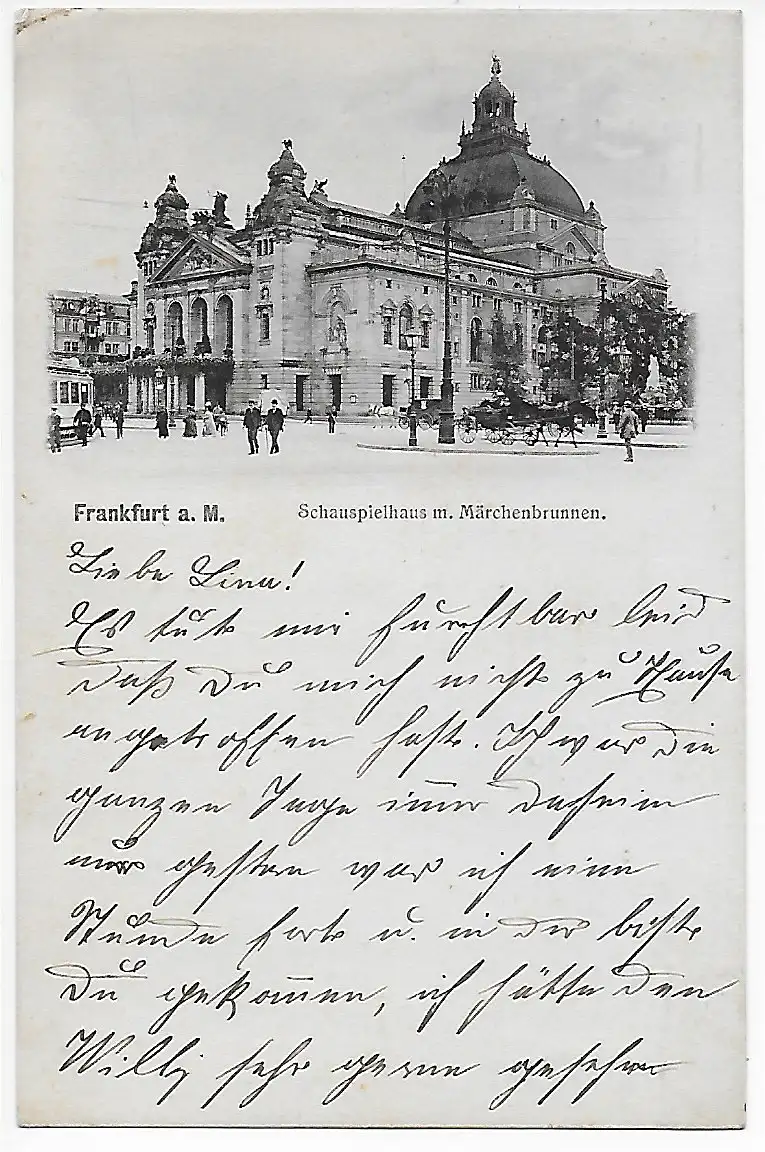 Frankfurt a. M. Schauspielhaus m. Märchenbrunnen.
Liebe Lina!
Es tut mir furchtbar leid
daß Du mich nicht zu Hause
angetroffen hast. Ich war die
ganzen Tage im̅er daheim
nur gestern war ich eine
Stunde fort u. in der bist
Du gekom̅en, ich hätte den
Willy sehr gerne gesehen